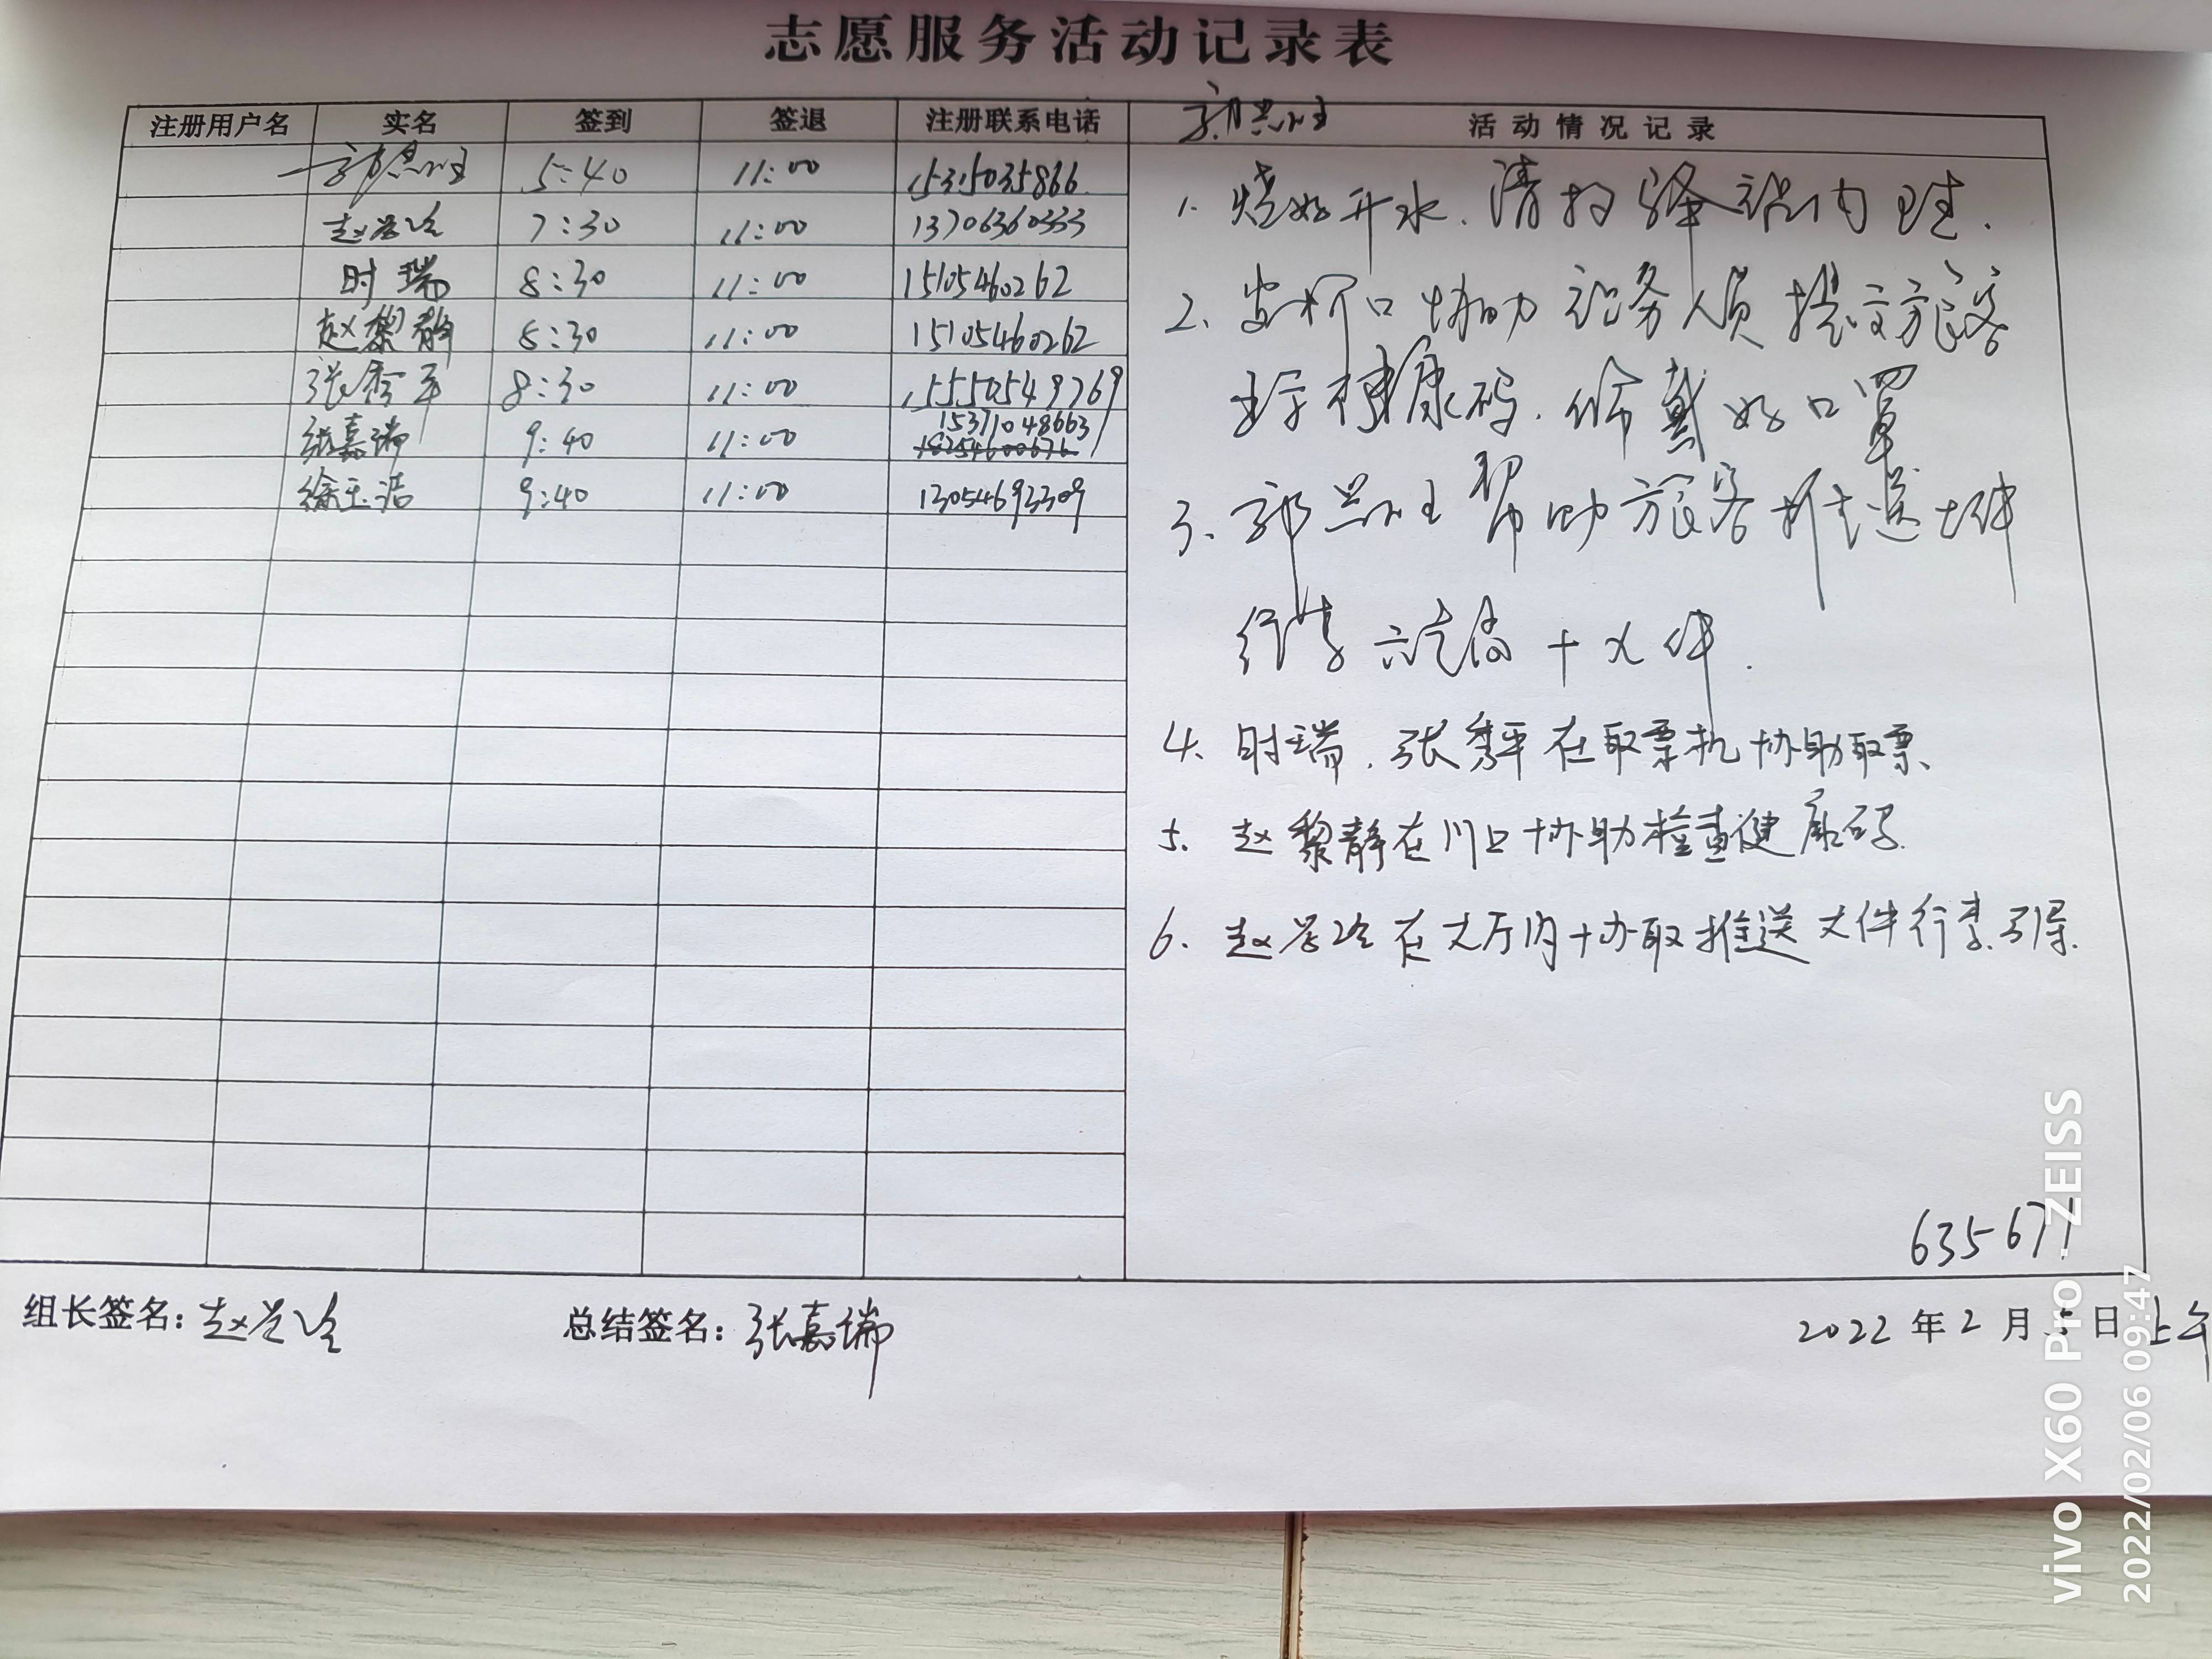 志愿服务活动记录表
注册用户名 实名 签到 签退 注册联系电话 活动情况记录
5:40 11:00 15315035866
7:30 11:00 13706360333
时瑞 8:30 11:00 15105460262
赵黎静 8:30 11:00 15105460262
张秀平 8:30 11:00 15550549769
张嘉瑞 9:40 11:00 15371048663
18254600676
徐玉洁 9:40 11:00 13054693309
1. 烧好开水.清扫驿站内卫生.
2. 安检口协助服务人员提示旅客
出示健康码.佩戴好口罩
3. 帮助旅客推送大件
行李 十 件.
4. 时瑞.张秀平在取票机协助取票、
5. 赵黎静在门口协助检查健康码.
6. 赵 在大厅内协取推送大件行李.引导.
635671
组长签名: 赵
总结签名: 张嘉瑞
2022年2月5日上午
vivo X60 Pro · ZEISS
2022/02/06 09:47